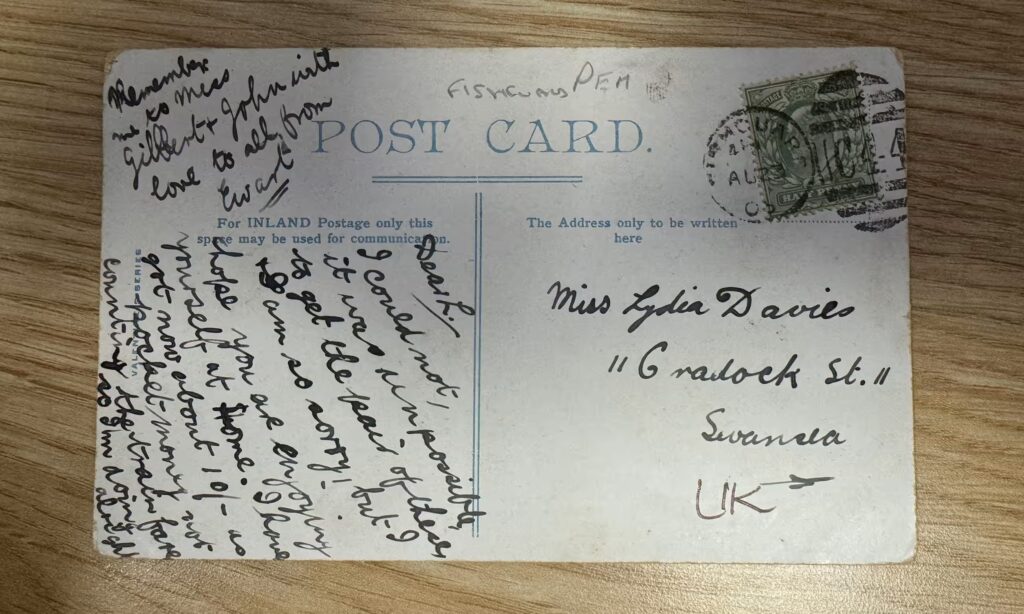 Remember
me to Miss
Gilbert & John with
love to all, from
Ewart
PEM
POST CARD.
For INLAND Postage only this
space may be used for communication.
The Address only to be written
here
VALENTINES SERIES
Dear L.,
I could not,
it was unpossible,
to get the pair of these
but I
& I am so sorry!-
hope you are enjoying
yourself at Home. I have
got now about 10/- as
pocket money not
counting the train fare
so I'm doing
alright
AU
Miss Lydia Davies
"Cradock St."
Swansea
UK